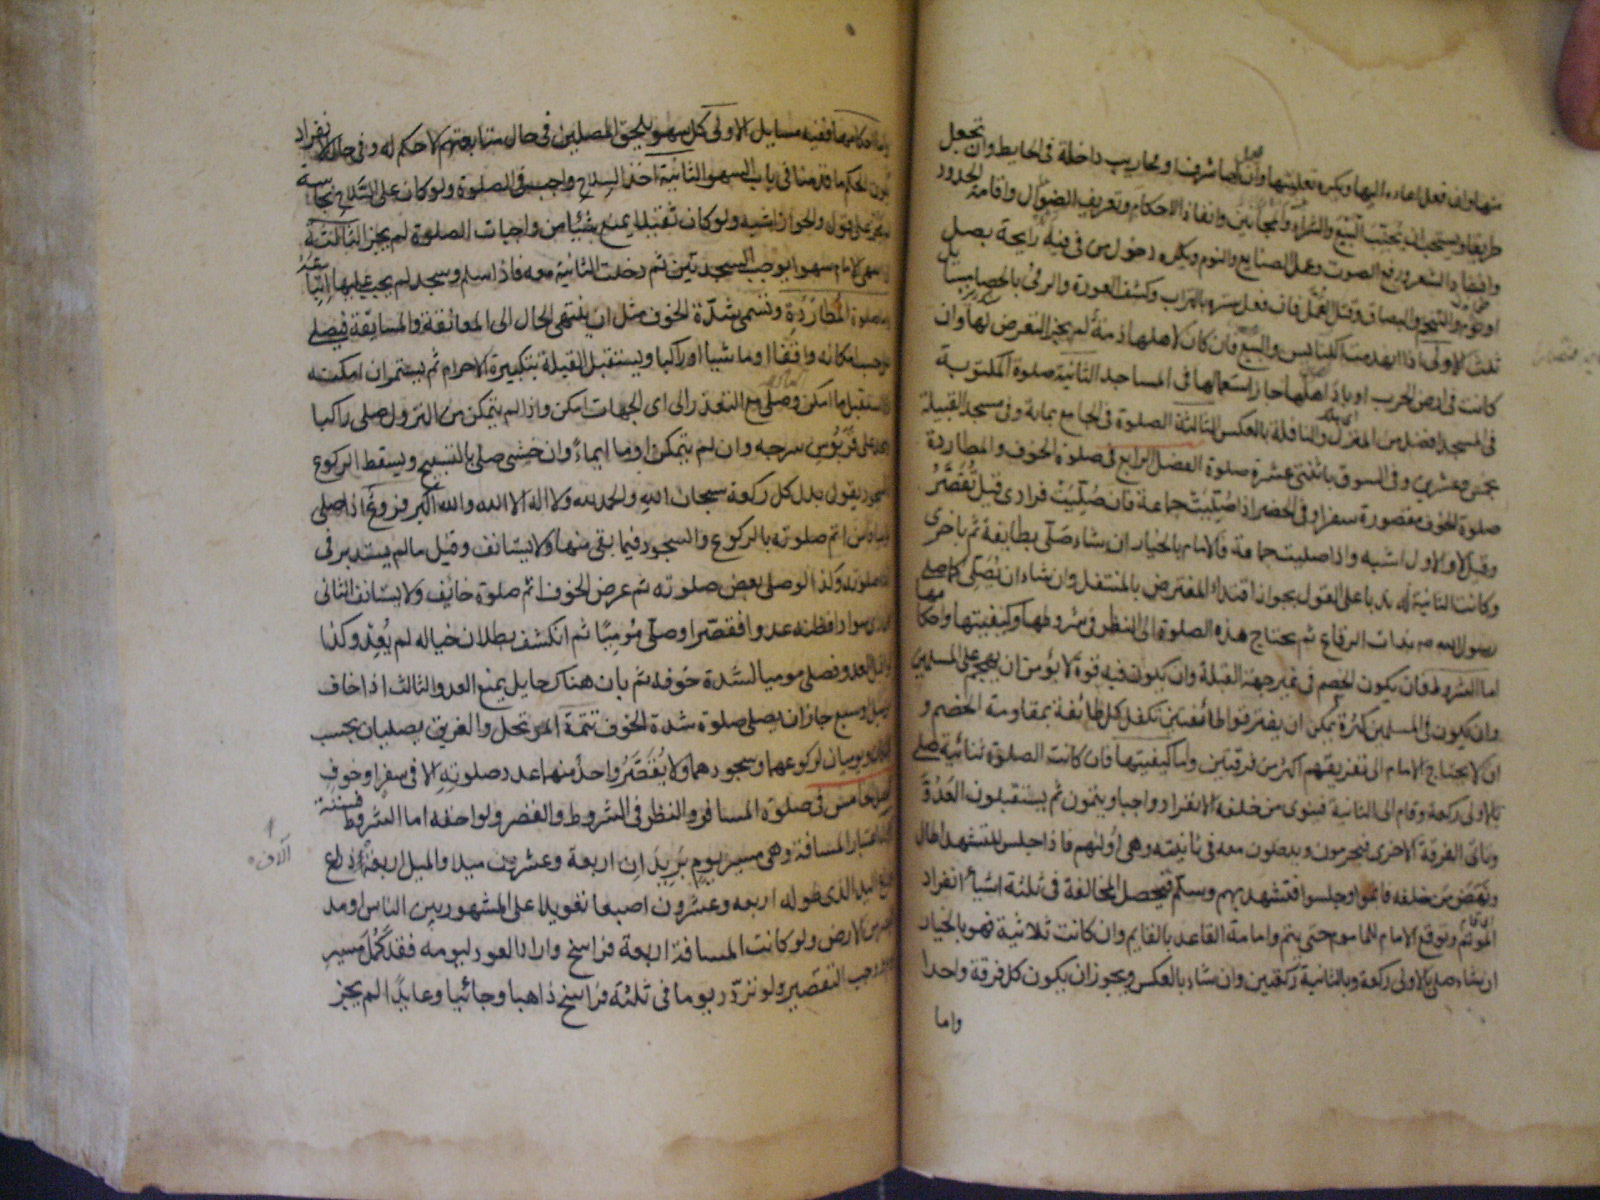 منها وان فعل اعاده اليها ويكره تعليتها وان يعمل لها شرفا ومحاريب داخلة في الحايط وان تجعل
طريقا ويستحب ان يجتنب البيع والشراء والمجانين وانفاذ الاحكام وتعريف الضوال واقامة الحدود
وانشاد الشعر ورفع الصوت وعمل الصنايع والنوم ويكره دخول من في فيه رايحة بصل
او ثوم والتنخم والبصاق وقتل القمل فان فعل ستره بالتراب وكشف العورة والرمي بالحصا مسايل
ثلث الاولى اذا انهدمت الكنايس والبيع فان كان لاهلها ذمة لم يجز التعرض لها وان
كانت في ارض الحرب او باد اهلها جاز استعمالها في المساجد الثانية صلوة المكتوبة
في المسجد افضل من المنزل والنافلة بالعكس الثالثة الصلوة في الجامع بماية وفي مسجد القبيلة
بخمس وعشرين وفي السوق باثنتي عشرة صلوة الفصل الرابع في صلوة الخوف والمطاردة
صلوة الخوف مقصورة سفرا وفي الحضر اذا صليت جماعة فان صليت فرادى قيل تقصر
وقيل لا والاول اشبه واذا صليت جماعة فالامام بالخيار ان شاء صلى بطايفة ثم باخرى
وكانت الثانية له ندبا على القول بجواز اقتداء المفترض بالمتنفل وان شاء ان يصلي كما صلى
رسول الله ص بذات الرقاع ثم يحتاج هذه الصلوة الى النظر في شروطها وكيفيتها واحكامها
اما الشروط فان يكون الخصم في غير جهة القبلة وان يكون فيه قوة لا يؤمن ان يهجم على المسلمين
وان يكون في المسلمين كثرة يمكن ان يفترقوا طائفتين تكفل كل طائفة بمقاومة الخصم و
ان لا يحتاج الامام الى تفريقهم اكثر من فرقتين واما كيفيتها فان كانت الصلوة ثنائية صلى
بالاولى ركعة وقام الى الثانية فينوي من خلفه الانفراد واجبا ويتمون ثم يستقبلون العدو
وتاتي الفرقة الاخرى فيحرمون ويدخلون معه في ثانيته وهي اولتهم فاذا جلس للتشهد اطال
ونهض من خلفه فاتموا وجلسوا فتشهد بهم وسلم فيحصل المخالفة في ثلثة اشياء انفراد
المؤتم وتوقع الامام للماموم حتى يتم وامامة القاعد بالقايم وان كانت ثلاثية فهو بالخيار
ان شاء صلى بالاولى ركعة وبالثانية ركعتين وان شاء بالعكس ويجوز ان يكون كل فرقة واحدا
واما
واما احكامها ففيه مسايل الاولى كل سهو يلحق المصلين في حال متابعتهم لا حكم له وفي حال الانفراد
يكون الحكم ما قدمنا في باب السهو الثانية اخذ السلاح واجب في الصلوة ولو كان على السلاح نجاسة
لم يجز على قول والجواز اشبه ولو كان ثقيلا يمنع شيئا من واجبات الصلوة لم يجز الثالثة
اذا سهى الامام سهوا يوجب السجدتين ثم دخلت الثانية معه فاذا سلم وسجد لم يجب عليها اتباعه
واما صلوة المطاردة وتسمى شدة الخوف مثل ان ينتهي الحال الى المعانقة والمسايفة فيصلي
على حسب امكانه واقفا او ماشيا او راكبا ويستقبل القبلة بتكبيرة الاحرام ثم يستمر ان امكنه
والا استقبل ما امكن وصلى مع التعذر الى اي الجهات امكن واذا لم يتمكن من النزول صلى راكبا
ويسجد على قربوس سرجه وان لم يتمكن اوما ايماء وان خشي صلى بالتسبيح ويسقط الركوع
والسجود يقول بدل كل ركعة سبحان الله والحمد لله ولا اله الا الله والله اكبر فروع اذا صلى
موميا فامن اتم صلوته بالركوع والسجود فيما بقي منها ولا يستانف وقيل ما لم يستدبر في
اثناء صلوته وكذا لو صلى بعض صلوته ثم عرض الخوف اتم صلوة خايف ولا يستانف الثاني
من راى سوادا فظنه عدوا فقصر او صلى موميا ثم انكشف بطلان خياله لم يعد وكذا
لو اقبل العدو فصلى موميا لشدة خوفه ثم بان هناك حايل يمنع العدو الثالث اذا خاف
من سيل او سبع جاز ان يصلي صلوة شدة الخوف تتمة المتوحل والغريق يصليان بحسب
الامكان ويوميان لركوعهما وسجودهما ولا يقصر واحد منهما عدد صلوته الا في سفر او خوف
الفصل الخامس في صلوة المسافر والنظر في الشروط والقصر ولواحقه اما الشروط فستة
الاول اعتبار المسافة وهي مسير يوم بريدان اربعة وعشرون ميلا والميل اربعة الاف ذراع
بذراع اليد الذي طوله اربعه وعشرون اصبعا تعويلا على المشهور بين الناس او مد
البصر من الارض ولو كانت المسافة اربعة فراسخ واراد العود ليومه فقد كمل مسير
يوم ووجب التقصير ولو تردد يوما في ثلثة فراسخ ذاهبا وجائيا وعايدا لم يجز
الاف